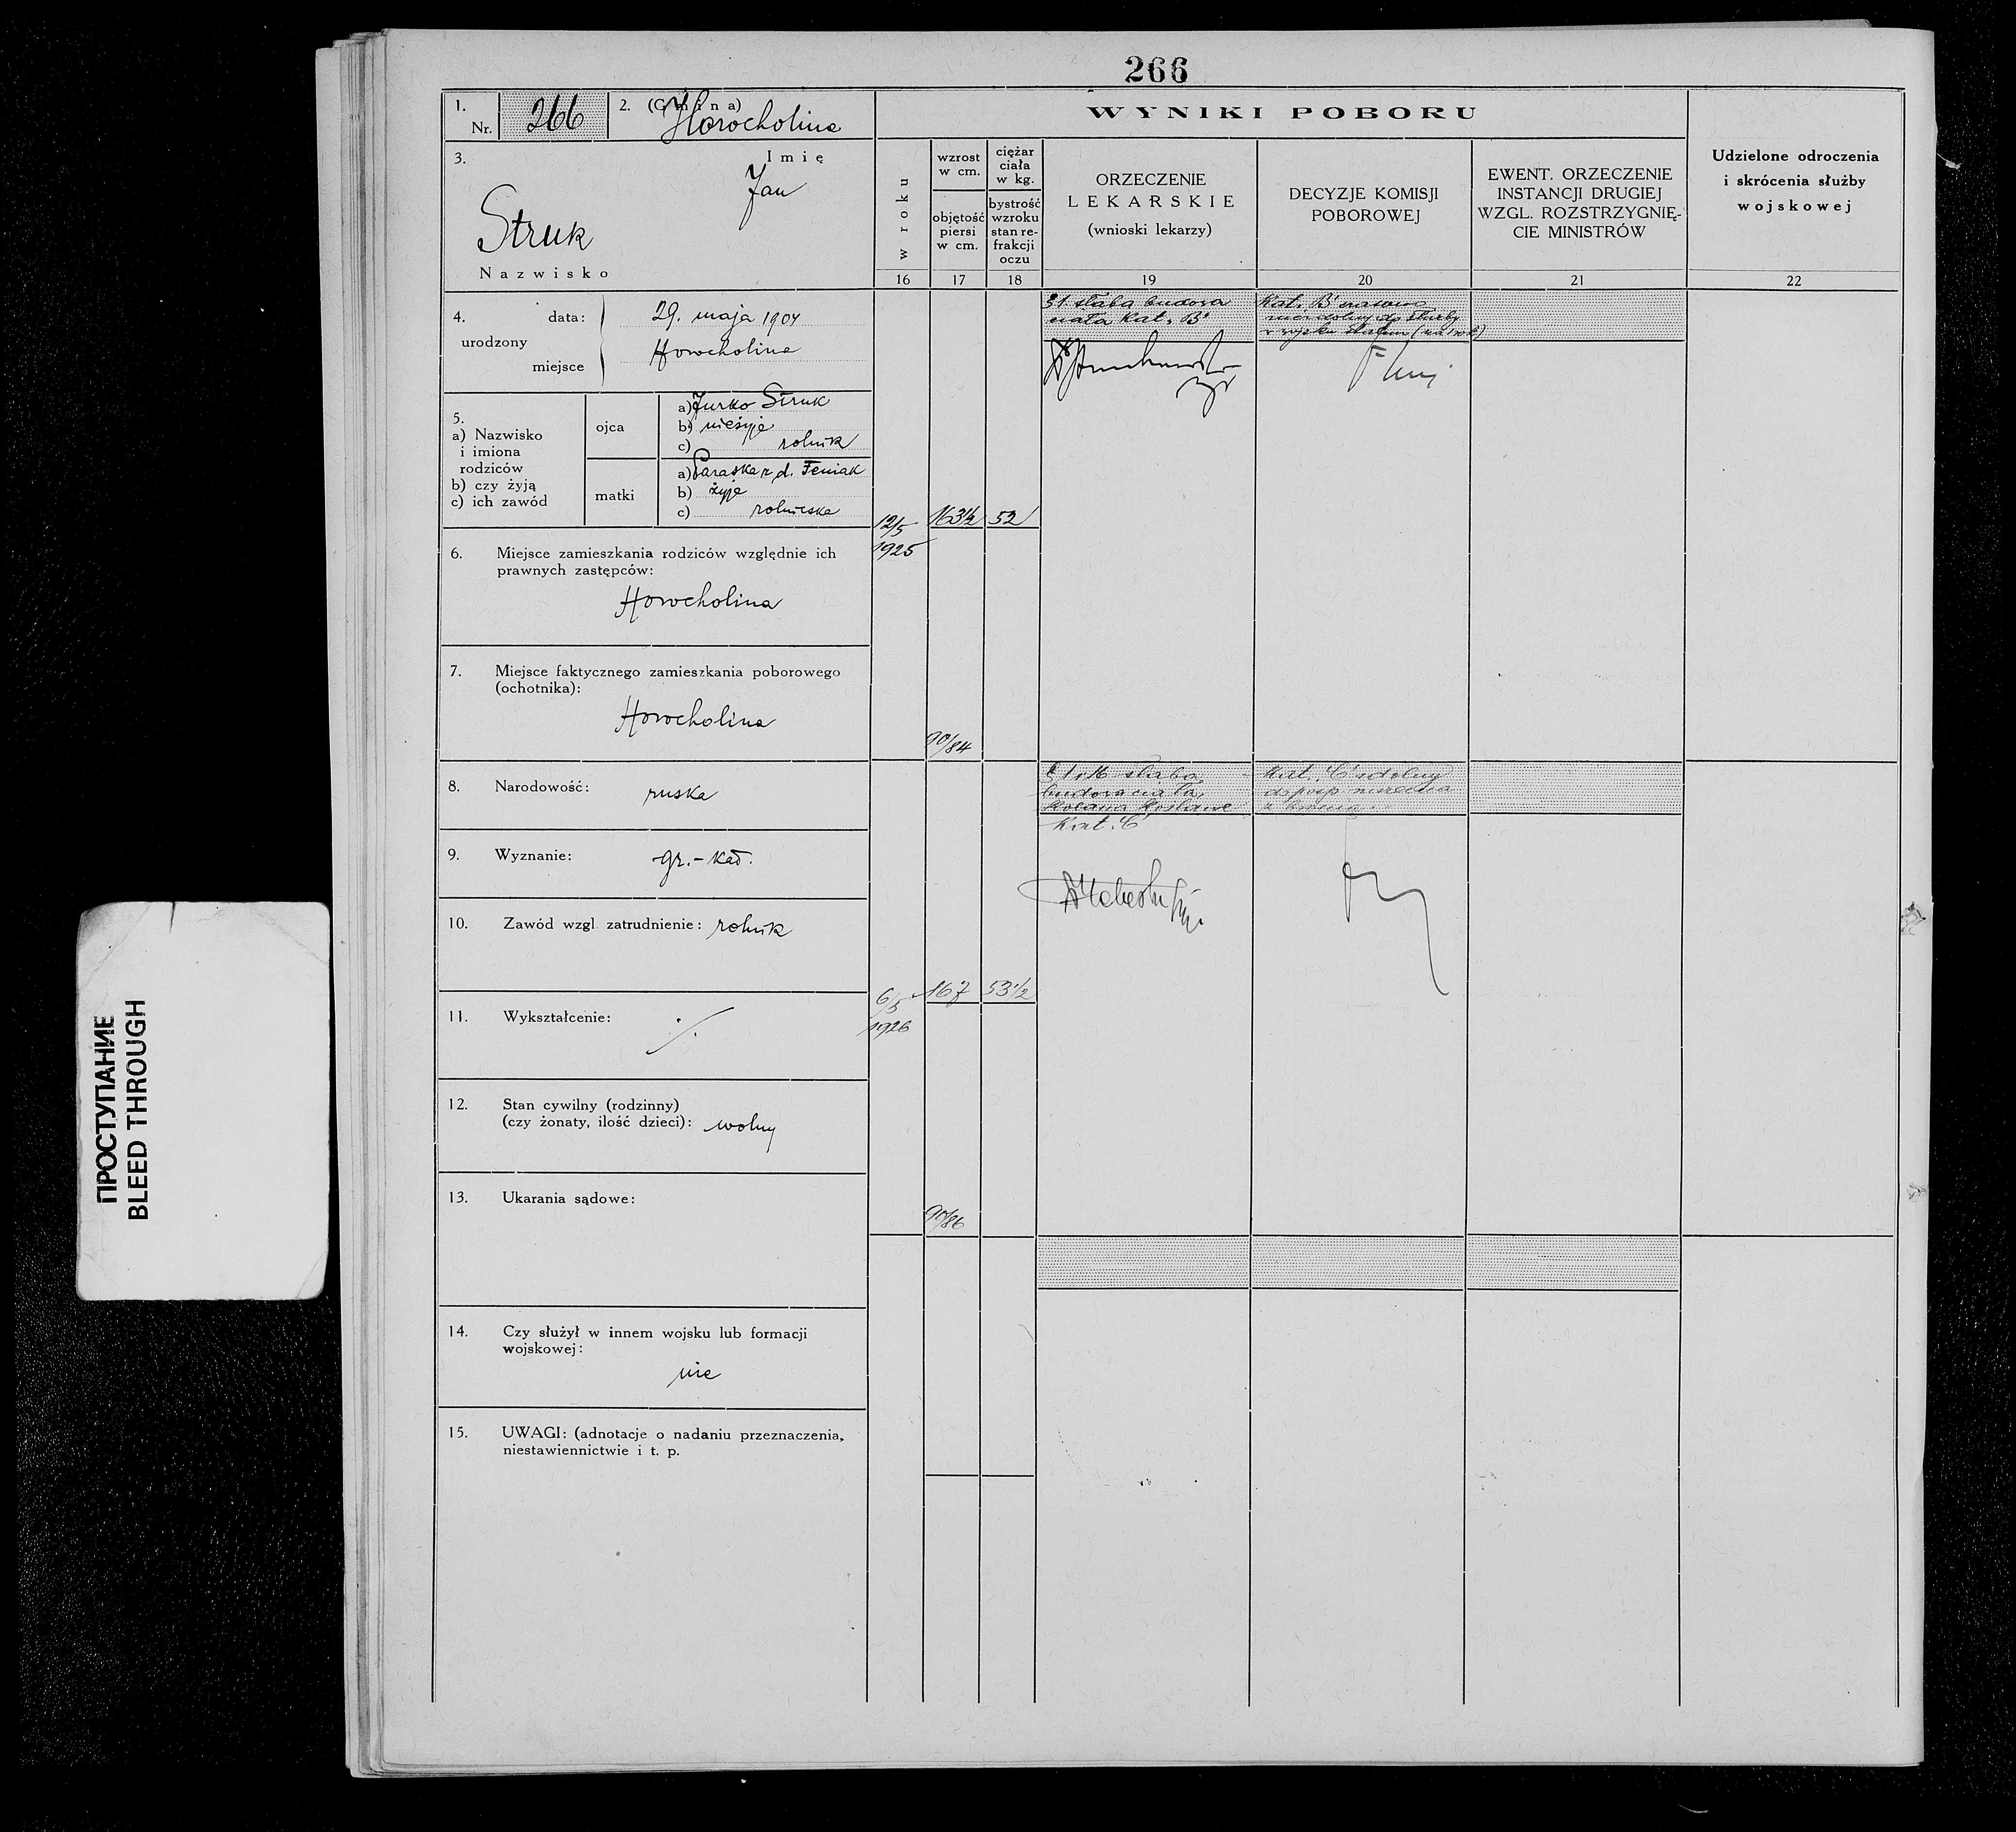 266
1. Nr. 266
2. (Gmina) Horocholina
3. Imię
Jan
Struk
Nazwisko
4. urodzony
data: 29. maja 1904
miejsce Horocholina
5.
a) Nazwisko
i imiona
rodziców
b) czy żyją
c) ich zawód
ojca
a) Jurko Struk
b) nieżyje
c) rolnik
matki
a) Paraska z d. Feniak
b) żyje
c) rolniczka
6. Miejsce zamieszkania rodziców względnie ich
prawnych zastępców:
Horocholina
7. Miejsce faktycznego zamieszkania poborowego
(ochotnika):
Horocholina
8. Narodowość: ruska
9. Wyznanie: gr.-kat.
10. Zawód wzgl. zatrudnienie: rolnik
11. Wykształcenie: ./.
12. Stan cywilny (rodzinny)
(czy żonaty, ilość dzieci): wolny
13. Ukarania sądowe:
14. Czy służył w innem wojsku lub formacji
wojskowej:
nie
15. UWAGI: (adnotacje o nadaniu przeznaczenia,
niestawiennictwie i t. p.
WYNIKI POBORU
w roku
16
wzrost
w cm.
objętość
piersi
w cm.
17
ciężar
ciała
w kg.
bystrość
wzroku
stan re-
frakcji
oczu
18
ORZECZENIE
LEKARSKIE
(wnioski lekarzy)
19
DECYZJE KOMISJI
POBOROWEJ
20
EWENT. ORZECZENIE
INSTANCJI DRUGIEJ
WZGL. ROZSTRZYGNIĘ-
CIE MINISTRÓW
21
Udzielone odroczenia
i skrócenia służby
wojskowej
22
12/5
1925
163½
52
90/84
§ 1. słaba budowa
ciała Kat. B
Kat. B czasowo
niezdolny do służby
6/5
1926
167
53½
90/86
słaba
budowa ciała,
kolana koślawe
Kat. C
Kat. C zdolny
do posp. ruszenia
z bronią.
ПРОСТУПАНИЕ
BLEED THROUGH